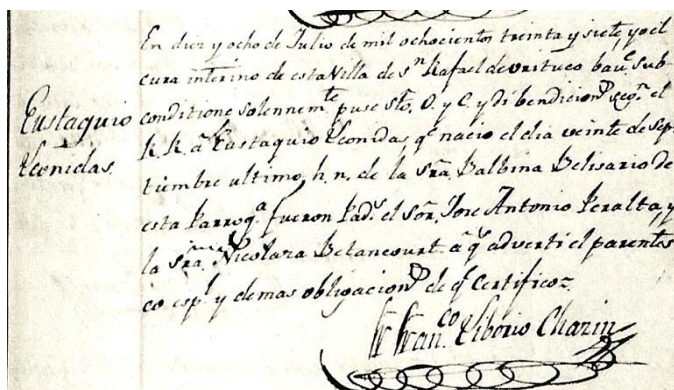 Eustaquio
Leonidas.
En diez y ocho de Julio de mil ochocientos treinta y siete, yo el
cura interino de esta Villa de Sn. Rafael de orituco bauce. sub-
conditione solennemte. puse sto. O. y C. y di bendicions. segn. el
R. R. a Eustaquio Leonidas qe. nacio el dia veinte de Sep-
tiembre ultimo, h. n. de la Sra. Balbina Belisario de
esta Parroqa. fueron Pads. el Sor. Jose Antonio Peralta, y
la Sra. Nicolaza Betancourt. a qs. adverti el parentes
co espl. y demas obligacions. de qe. Certifico.
Fr. Franco. Liborio Charin